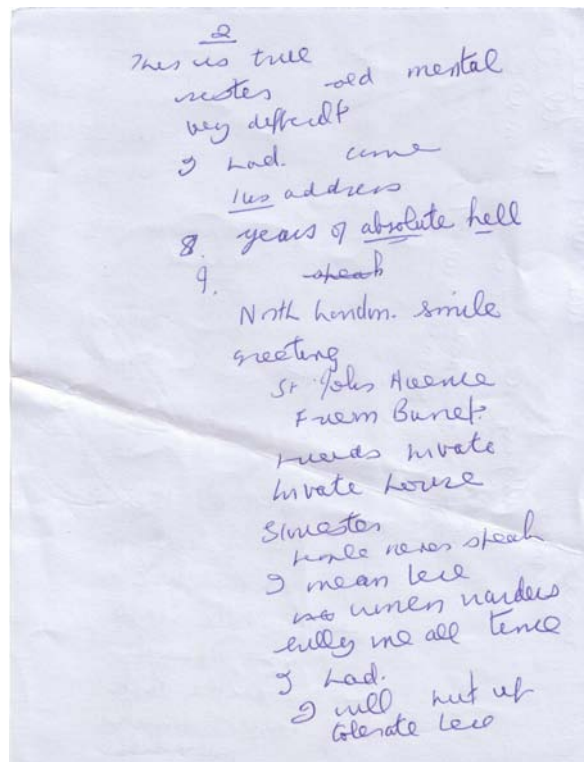 2
This is true
notes old mental
very difficult
I had. come
this address
8. years of absolute hell
9. speak
North London. smile
greeting
St Johns Avenue
Friern Barnet.
private
private house
never speak
I mean here
women wardens
bully me all time
I had.
I will put up
tolerate here